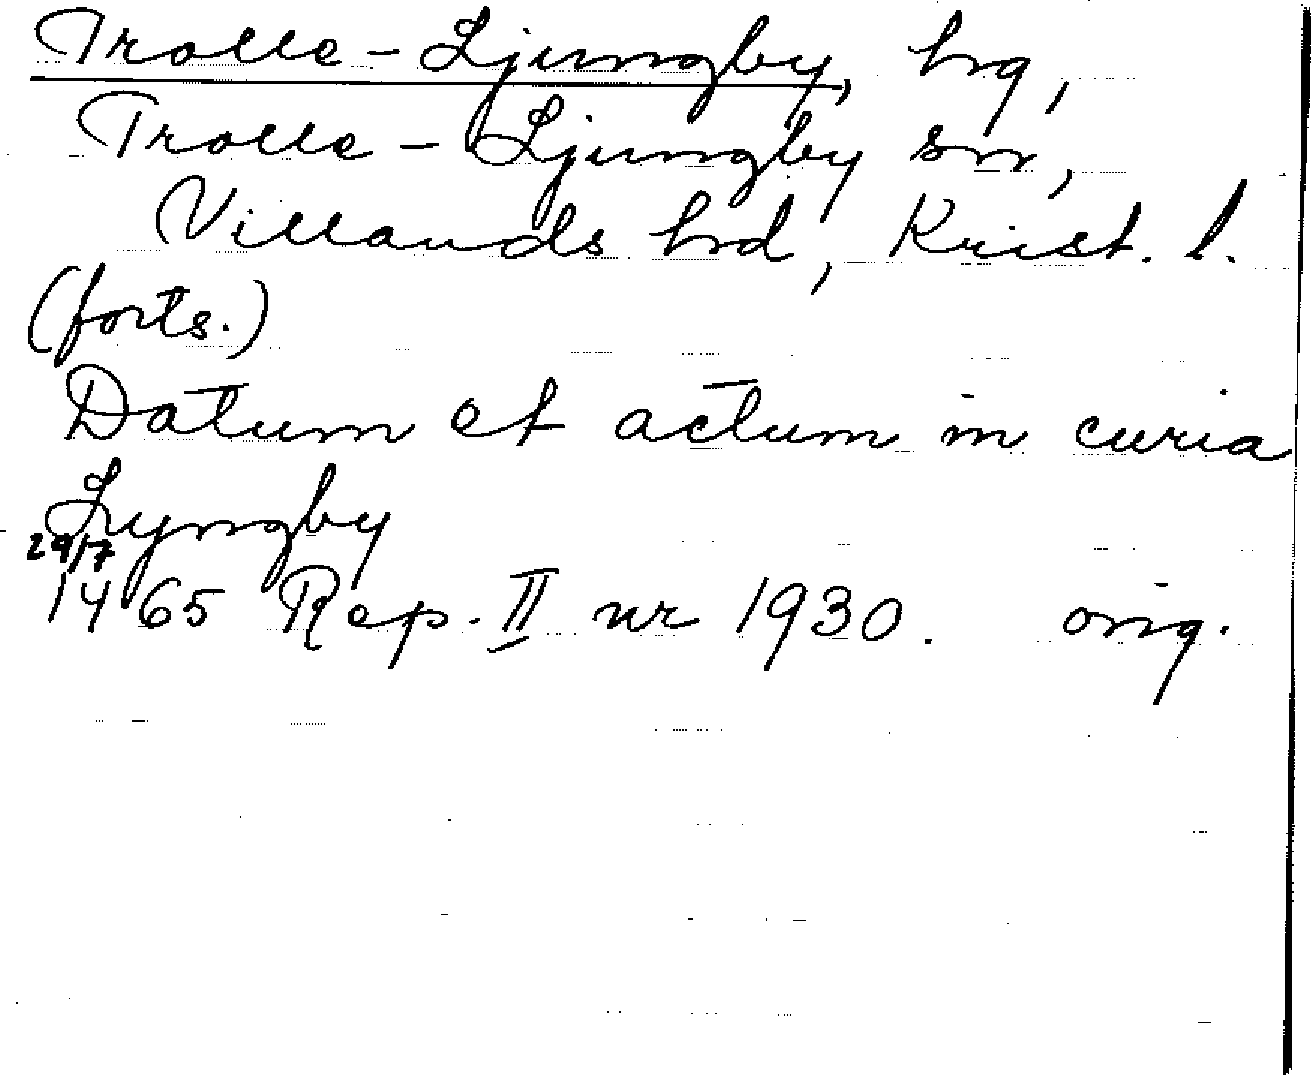 Trolle-Ljungby, hrg,
Trolle-Ljungby sn,
Villands hrd, Krist. l.
(forts.)
Datum et actum in curia
Lyngby
29/7
1465 Rep. II nr 1930. orig.